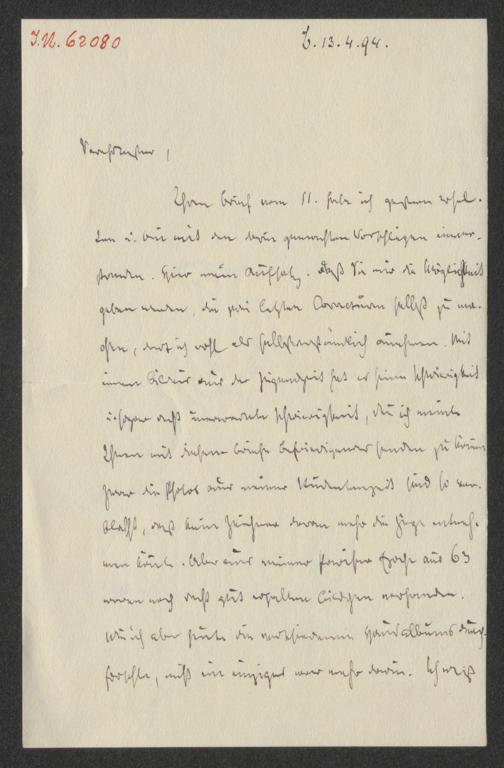 J.N. 62080
B. 13.4.94.
Verehrtester,
Ihren Brief vom 11. habe ich gestern erhal-
ten u. bin mit den darin gemachten Vorschlägen einver-
standen. Hier mein Aufsatz. Daß Sie mir die Möglichkeit
geben werden, die zwei letzten Correcturen selbst zu ma-
chen, darf ich wohl als selbstverständlich annehmen. Mit
einem Bilde aus der Jugendzeit hat es seine Schwierigkeit
u. sogar recht unerwartete Schwierigkeit, da ich meinte
Ihnen mit diesem Briefe Befriedigendes senden zu können
Zwar die Photos aus meiner Studentenzeit sind so ver-
blaßt, daß kein Zeichner davon mehr die Züge entneh-
men könnte. Aber aus meiner Epoche aus 63
waren noch recht gut erhaltene Bildchen vorhanden.
Wie ich aber heute die verschiedenen Hausalbums durch-
forschte, nicht ein einziges war mehr darin. Ich weiß